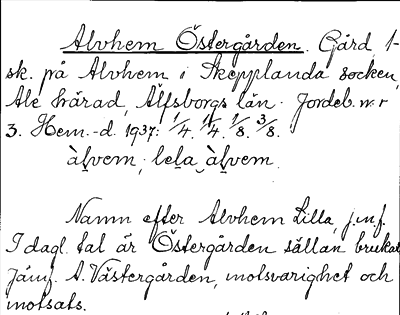 Alvhem Östergården. Gård, 1-
sk. på Alvhem i Skepplanda socken,
Ale härad, Älfsborgs län. Jordeb. nr
3. Hem.-d. 1937: 1/4. 1/4. 1/8. 3/8.
àļvem, leļa àļvem.
Namn efter Alvhem Lilla, j.m.f.
I dagl. tal är Östergården sällan brukat
Jämf. A. Västergården, motsvarighet och
motsats.